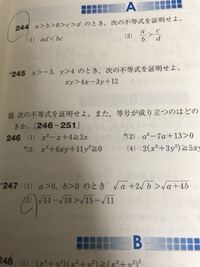 A
244 a>b>0>c>d のとき, 次の不等式を証明せよ。
(1) ad<bc (2) a/b>c/d
*245 x>-3, y>4 のとき, 次の不等式を証明せよ。
xy>4x-3y+12
次の不等式を証明せよ。また, 等号が成り立つのはどの
きか。[246~251]
246 (1) x²-x+4≧3x *(2) a²-7a+13>0
*(3) x²+6xy+11y²≧0 (4) 2(x²+3y²)≧5xy
*247 (1) a>0, b>0 のとき √a+2√b>√a+4b
(2) √14-√10>√15-√11
B
248